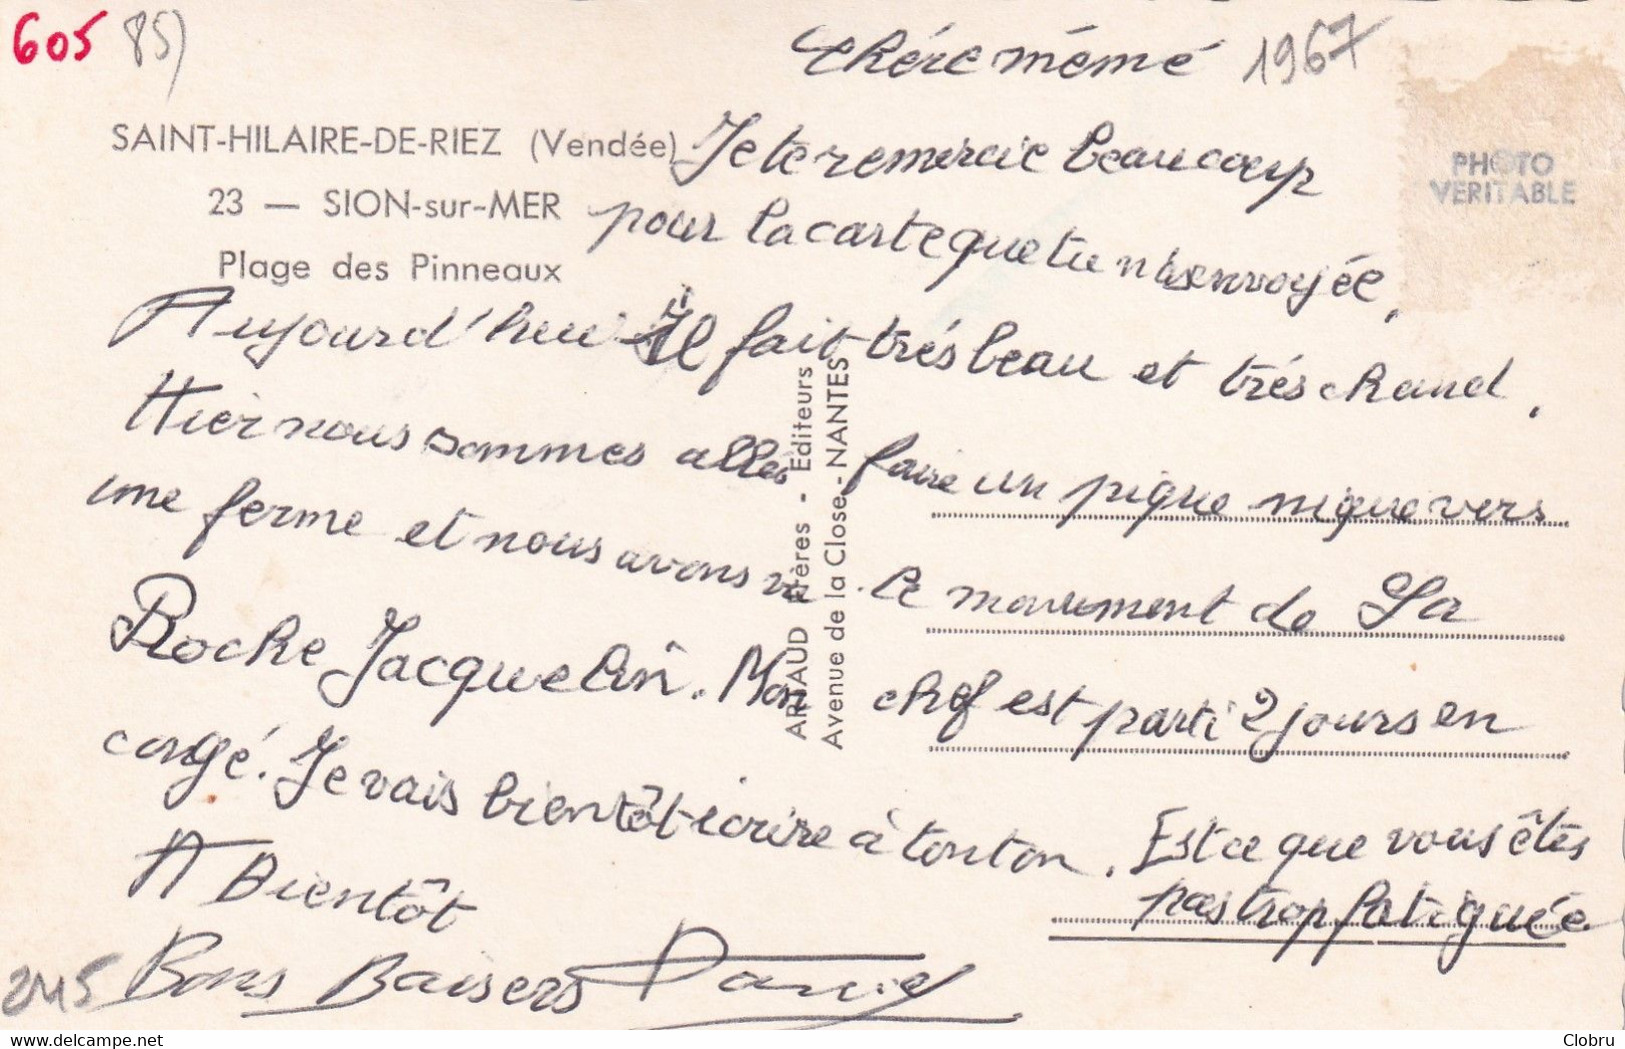 605 85)
Chére mémé 1967
PHOTO
VERITABLE
SAINT-HILAIRE-DE-RIEZ (Vendée)
23 — SION-sur-MER
Plage des Pinneaux
Je te remercie beaucoup
pour la carte que tu envoyée,
Aujourd'hui Il fait trés beau et trés chaud,
Hier nous sommes allés faire un pique nique vers
une ferme et nous avons vu le monument de La
Roche Jacquelin. Mon chef est parti 2 jours en
congé. Je vais bientôt écrire à tonton. Est ce que vous êtes
pas trop fatiguée
A Bientôt
Bons Baisers Daniel
245
ARNAUD Frères - Editeurs
Avenue de la Close - NANTES
delcampe.net
Clobru